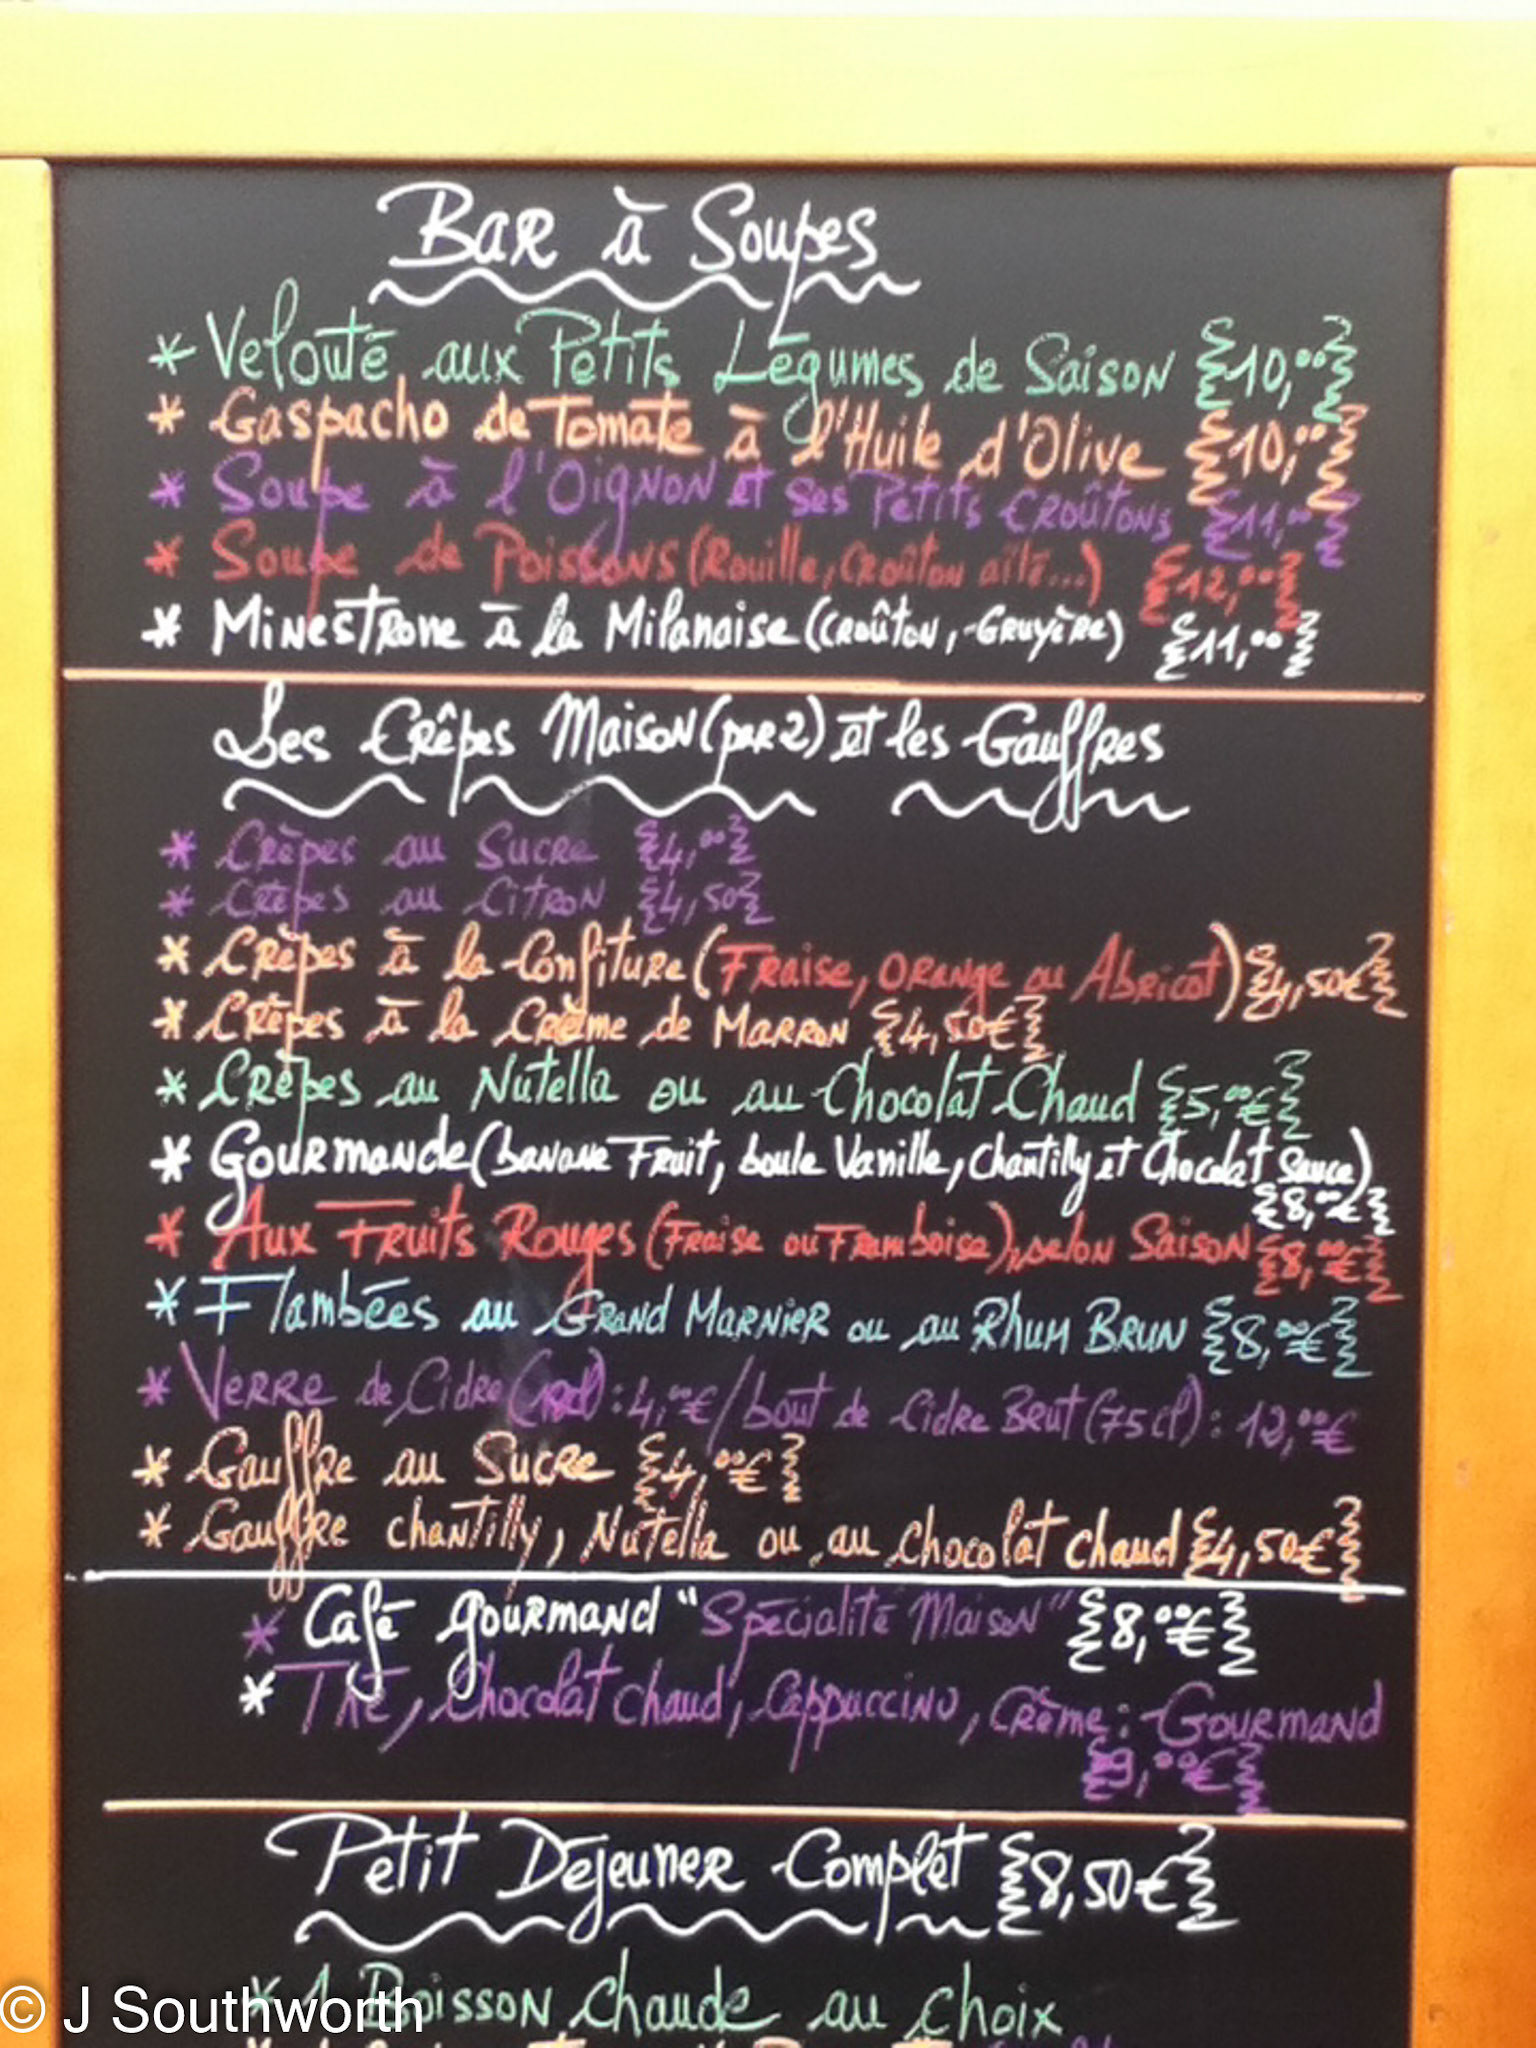 Bar à Soupes
* Velouté aux Petits Légumes de Saison {10,00}
* Gaspacho de Tomate à l'Huile d'Olive {10,00}
* Soupe à l'Oignon et ses Petits Croûtons {11,00}
* Soupe de Poissons (Rouille, Croûton aïlé...) {12,00}
* Minestrone à la Milanaise (Croûton, Gruyère) {11,00}
Les Crêpes Maison (par 2) et les Gauffres
* Crêpes au Sucre {4,00}
* Crêpes au Citron {4,50}
* Crêpes à la Confiture (Fraise, Orange ou Abricot) {4,50€}
* Crêpes à la Crème de Marron {4,50€}
* Crêpes au Nutella ou au Chocolat Chaud {5,00€}
* Gourmande (banane Fruit, boule Vanille, Chantilly et Chocolat Sauce)
{8,00€}
* Aux Fruits Rouges (Fraise ou Framboise), selon Saison {8,00€}
* Flambées au Grand Marnier ou au Rhum Brun {8,00€}
* Verre de Cidre : 4,00€ / bout de Cidre Brut (75cl) : 12,00€
* Gauffre au Sucre {4,00€}
* Gauffre chantilly, Nutella ou au chocolat chaud {4,50€}
* Café gourmand "Spécialité Maison" {8,00€}
* Thé, Chocolat chaud, Cappuccino, Crème : Gourmand
{9,00€}
Petit Déjeuner Complet {8,50€}
* 1 Boisson chaude au choix
© J Southworth